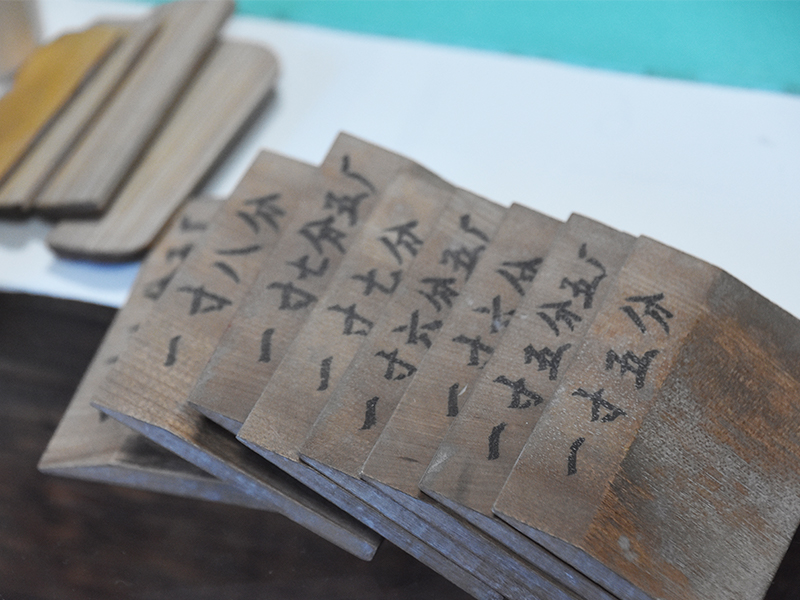 一寸八分
一寸七分五厂
一寸七分
一寸六分五厂
一寸六分
一寸五分五厂
一寸五分